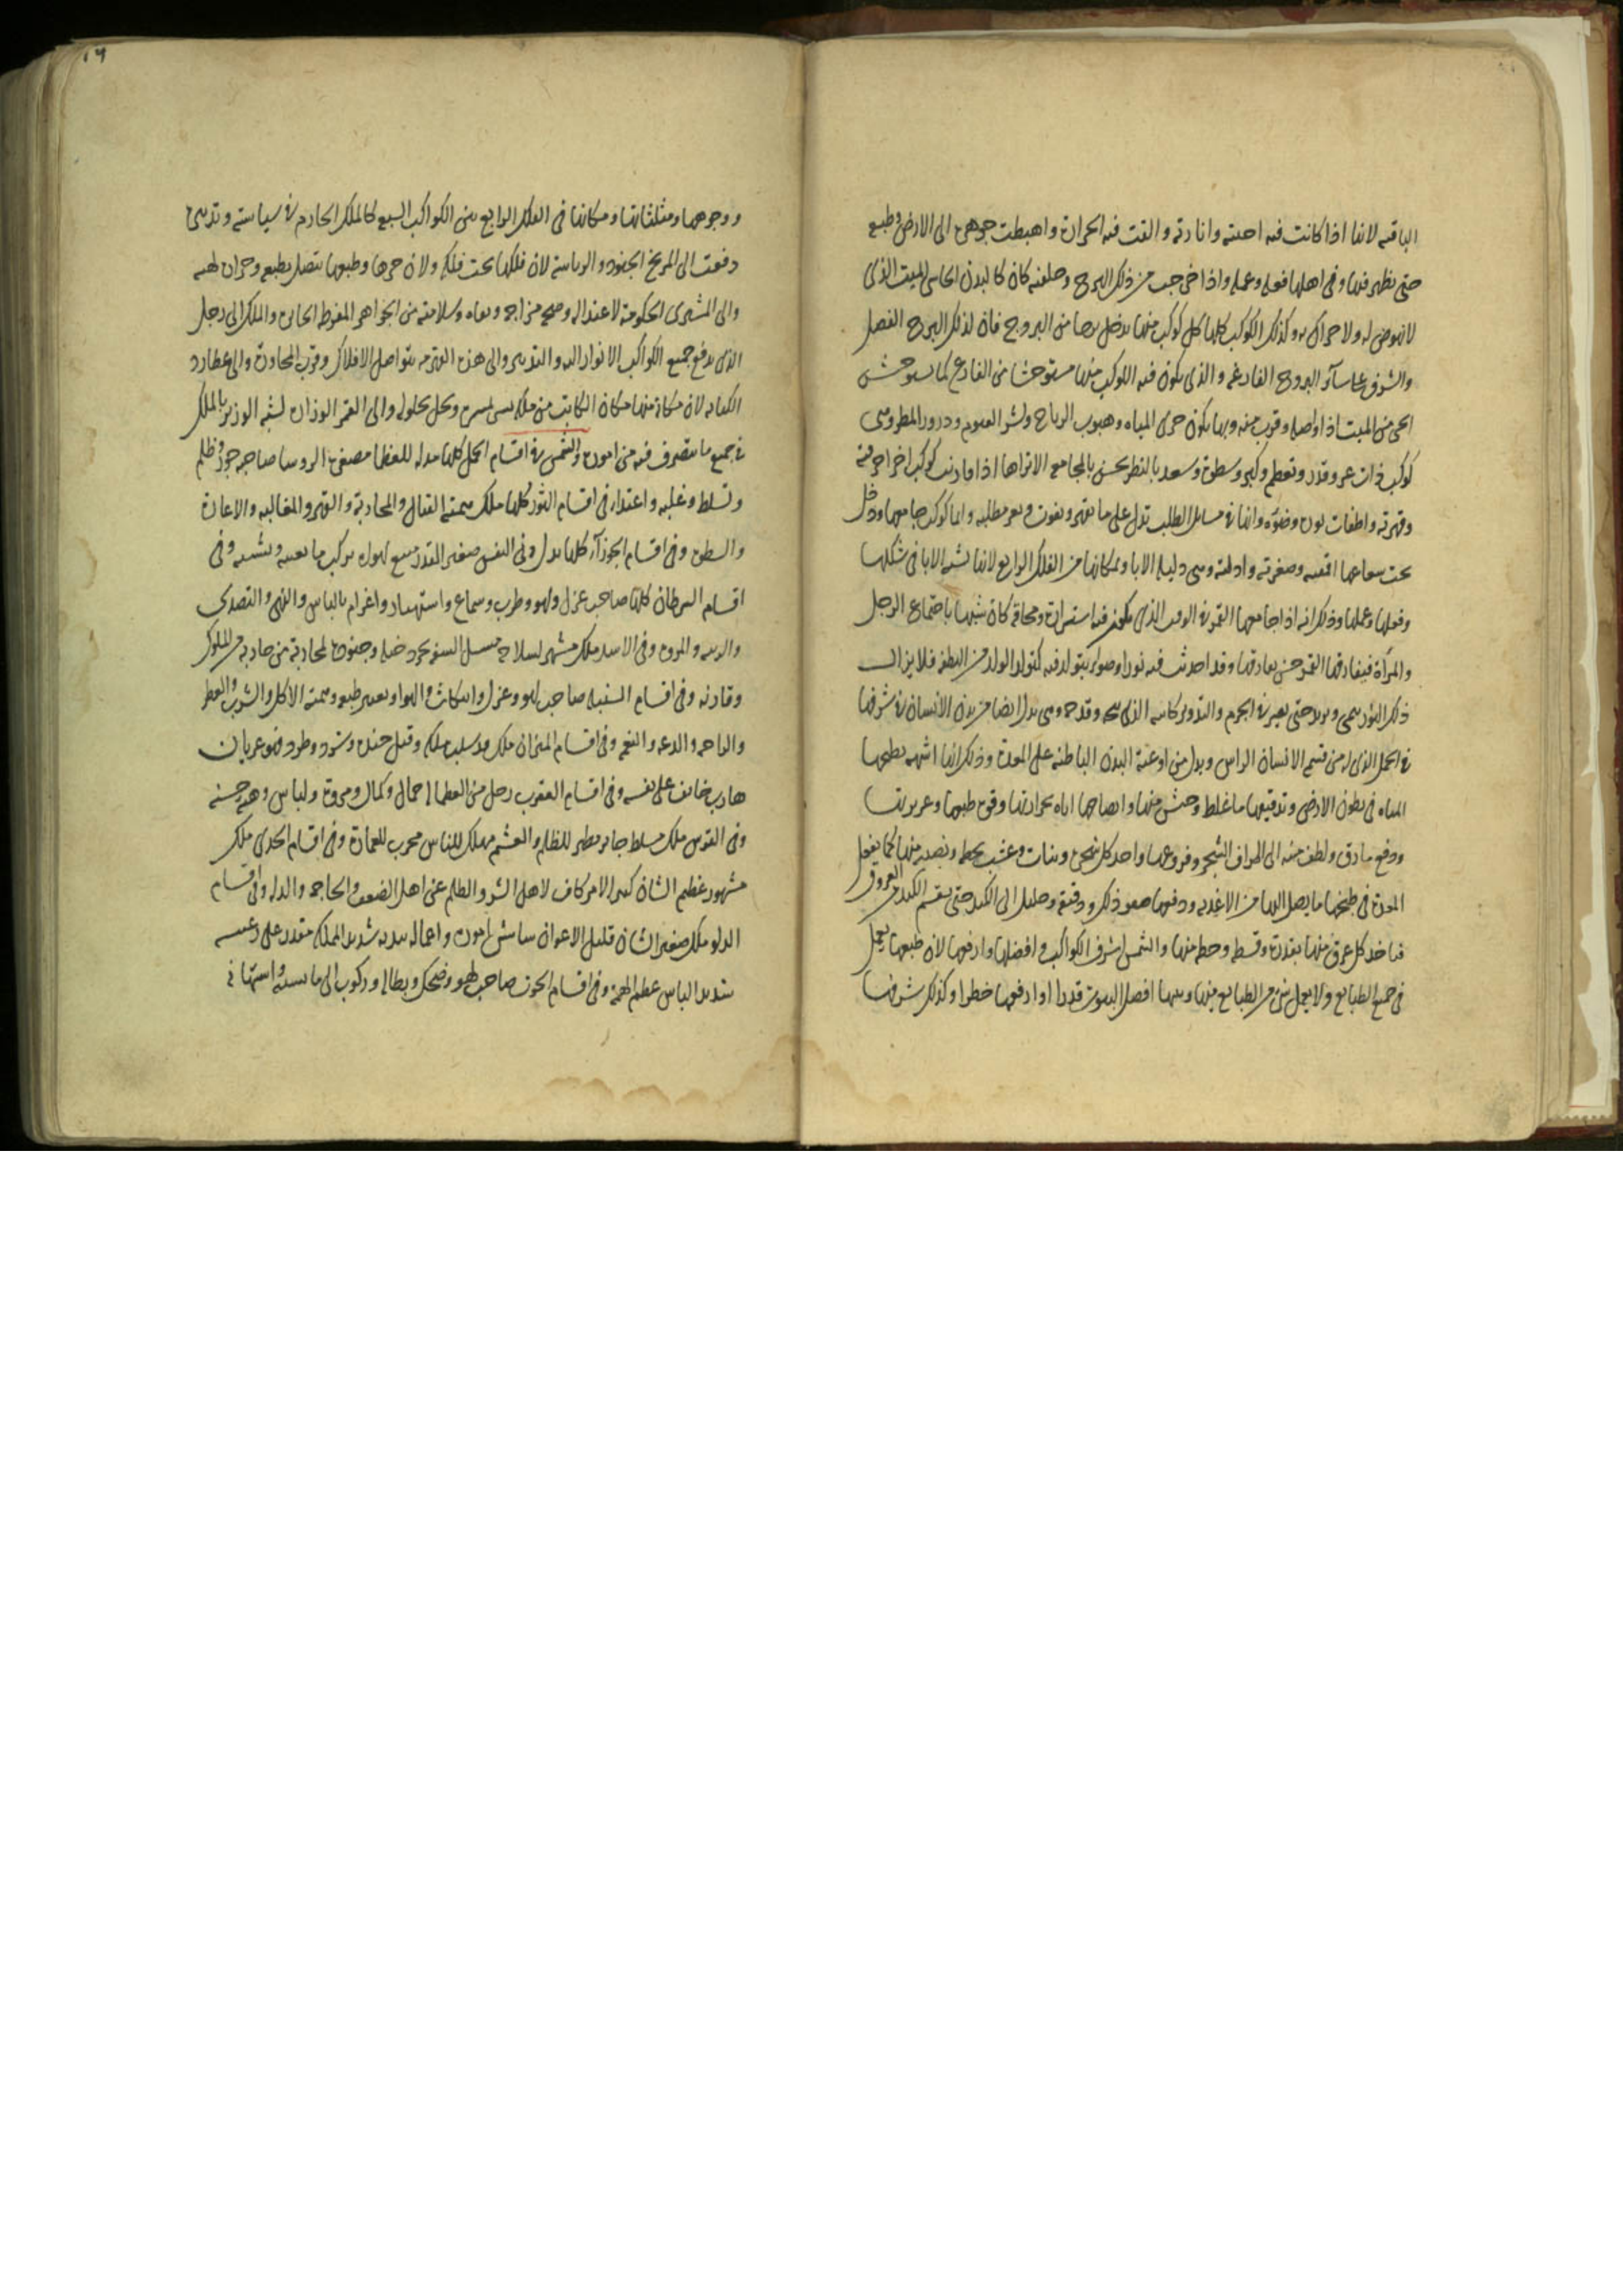 الباقيه لانها اذا كانت فيه احيته وانارته والقت فيه الحرارة واهبطت جوهره الى الارض وطبعه
حتى يظهر فيها وفى اهلها فعله وعمله واذا خرجت من ذلك البرج وخلفته كان كالبدن الجاسى الميت الذى
لا نهوض له ولا حراك به وكذلك الكواكب كلها كل كوكب منها يدخل برجا من البروج فان لذلك البرج الفضل
والشرف على سائر البروج الفارغه والذى يكون فيه الكوكب منها مستوحشا من الفارغ كما يستوحش
الحى من الميت اذا وقرب منه وبها يكون جرى المياه وهبوب الرياح ونشر الغيوم ودرور المطر وهى
كوكب ذات عز وقدر وتعظم وكبر وسطوة وسعد بالنظر نحس بالمجامعه الا تراها اذا قارنت كوكبا اخر احرقته
وقهرته واطفات نوره وضوءه وانها فى مسائل الطلب تدل على ما يقهر ويفوت ويعز مطلبه وايما كوكب جامعها ودخل
تحت شعاعها وصغرته واذلته وهى دليله الابا ومكانها من الفلك الرابع لانها تشبه الابا فى شكلها
وفعلها وعملها وذلك انه اذا جامعها القمر فى الوقت الذى يكون فيه استراره ومحاقه كان شبيها باجتماع الرجل
والمراة فيفارقها القمر حين يفارقها وقد احدث فيه نورا وضوا يتولد فيه كتولد الولد من النطفه فلا يزال
ذلك النور ينمى ويزيد حتى يصير فى الجرم والتدوير وهى تدل ايضا من بدن الانسان فى شرفها
فى الحمل الذى له من قسم الانسان الراس وتدل من اوعية البدن الباطنه على المعدة وذلك انها اشبهه بطبخها
المياه فى بطون الارض وتدقيقها ما غلظ وخشن منها وانضاجها اياه بحرارتها وقوة طبعها
ودفع ما دق ولطف منه الى اطراف الشجر وفروعها واخذ كل شجرة ونبات وعشب بحظه ونصيبه منها كما يفعل
المعدة فى طبخها ما يصل اليها من الاغذيه ودفعها صفو ذلك ودقيقه الى الكبد حتى يقسم الكبد فى العروق
فياخذ كل عرق منها بقدره وقسطه وحظه منها والشمس اشرف الكواكب وافضلها وارفعها لان طبعها يعمل
فى جميع الطبايع ولا يعمل شى من الطبايع فيها وبيتها افضل البيوت قدرا وارفعها خطرا وكذلك شرفها
١٦
ووجوهها ومثلثاتها ومكانها فى الفلك الرابع من الكواكب السبع كالملك الحازم فى سياسته وتدبيره
دفعت الى المريخ الجنود والرياسة لان فلكها تحت فلكه ولان حرها وطبعها يتصل بطبعه وحرارة لهبه
والى المشترى الحكومة لاعتداله وصحة مزاجه وسلامته من الجواهر المفرطه الجايره والملك الى زحل
الذى يدفع جميع الكواكب الانوار اليه والتدبير والى هذه الزهره بتواصل الافلاك وقرب المجاورة والى عطارد
الكتابه لان مكانه منها مكان الكاتب من ملكه يسير بمسيره ويحل بحلوله والى القمر الوزارة لشبه الوزير بالملك
فى جميع ما يتصرف فيه من اموره والشمس فى اقسام الحمل كلها مذله للعظما مصغره الروسا صاحبه جور وظلم
وتسلط وغلبه واعتدا وفى اقسام الثور كلها ملك همته القتال والمحاربة والقهر والمغالبه والاغارة
والسطوة وفى اقسام الجوزآء كلها صغير القدر متبع لهواه يركب ما يعيبه ويشينه وفى
اقسام السرطان كلها صاحب غزل ولهو وطرب وسماع واستهتار واغرام بالناس والتصدى
وفى الاسد ملك مشهر لسلاحه مجرد خيله وجنوده لمحاربة من حاربه من الملوك
وقارنه وفى اقسام السنبله صاحب لهو وغزل واتباع الهوا وهمته الاكل والشرب والعطر
والراحه والدعه والنغم وفى اقسام الميزان ملك قد سلب ملكه وقتل جنده وشرد وطرد فهو عريان
هارب خايف على نفسه وفى اقسام العقرب رجل من العظما له جمال وكمال ومروة ولباس وهيئه حسنه
وفى القوس ملك مسلط جاير مظهر للظلم والغشم مهلك للناس مخرب للعمارة وفى اقسام الجدى ملك
مشهور عظيم الشان كبير الامر كاف لاهل الشر والظلم عن اهل الضعف والحاجه والذله وفى اقسام
الدلو ملك صغير الشان قليل الاعوان مباشر اموره واعماله بيده شديد المملكه مقتدر على رعيته
شديد الباس عظيم الهمة وفى اقسام الحوت صاحب لهو وضحك وبطاله وركوب الى ما